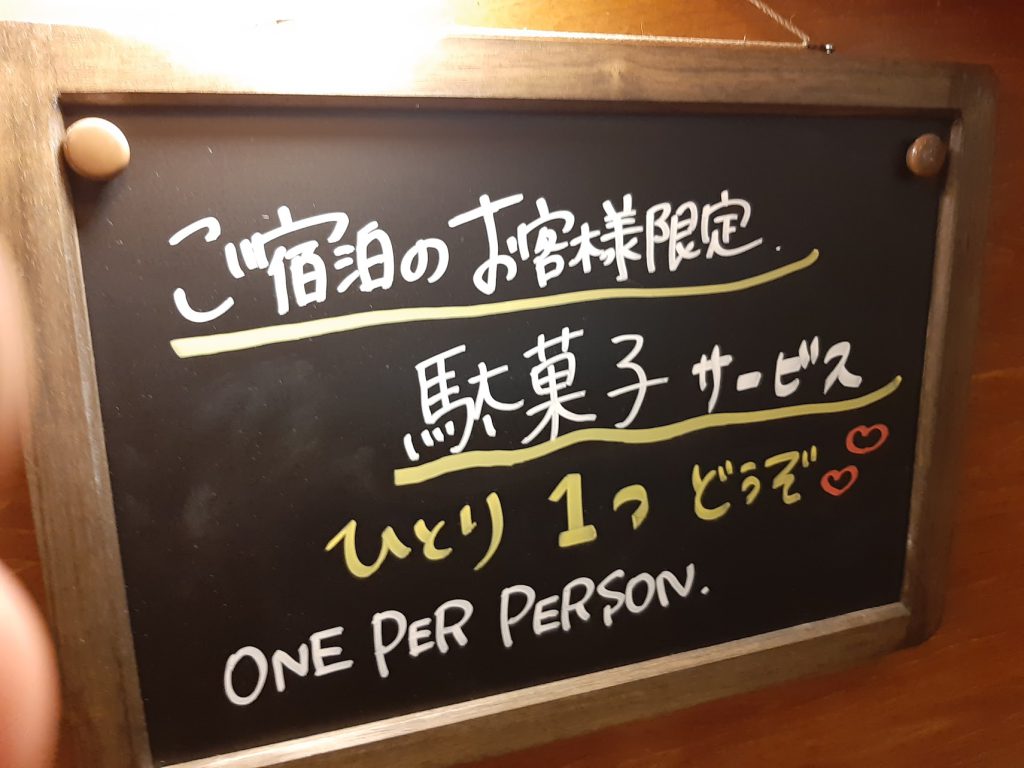 ご宿泊のお客様限定.
駄菓子サービス
ひとり 1つ どうぞ
ONE PER PERSON.